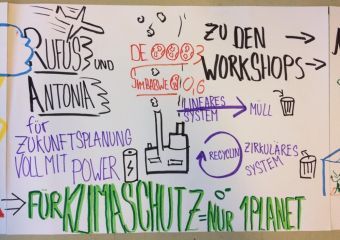 RUFUS
UND
ANTONIA
für
ZUKUNFTSPLANUNG
VOLL MIT
POWER
DE 3
SIMBABWE 0,6
ZU DEN
WORKSHOPS
LINEARES
SYSTEM
MÜLL
RECYCLIN
ZIRKULÄRES
SYSTEM
FÜR KLIMASCHUTZ = NUR 1 PLANET